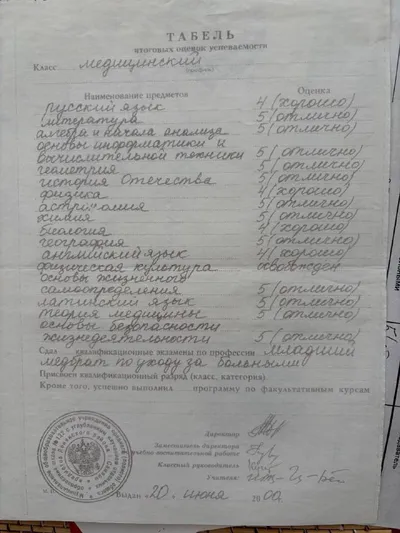 ТАБЕЛЬ
итоговых оценок успеваемости
Класс медицинский
(профиль)
Наименование предметов Оценка
русский язык 4 (хорошо)
литература 5 (отлично)
алгебра и начала анализа 5 (отлично)
основы информатики и
вычислительной техники 5 (отлично)
геометрия 5 (отлично)
история Отечества 5 (отлично)
физика 4 (хорошо)
астрономия 5 (отлично)
химия 5 (отлично)
биология 4 (хорошо)
география 5 (отлично)
английский язык 4 (хорошо)
физическая культура освобожден
основы жизненного
самоопределения 5 (отлично)
латинский язык 5 (отлично)
теория медицины 5 (отлично)
основы безопасности
жизнедеятельности 5 (отлично)
Сдал квалификационные экзамены по профессии младший
медбрат по уходу за больными
Присвоен квалификационный разряд (класс, категория)
Кроме того, успешно выполнил программу по факультативным курсам
Директор
Заместитель директора
учебно-воспитательной работе
Классный руководитель
Учителя:
Выдан «20» июня 2000г.